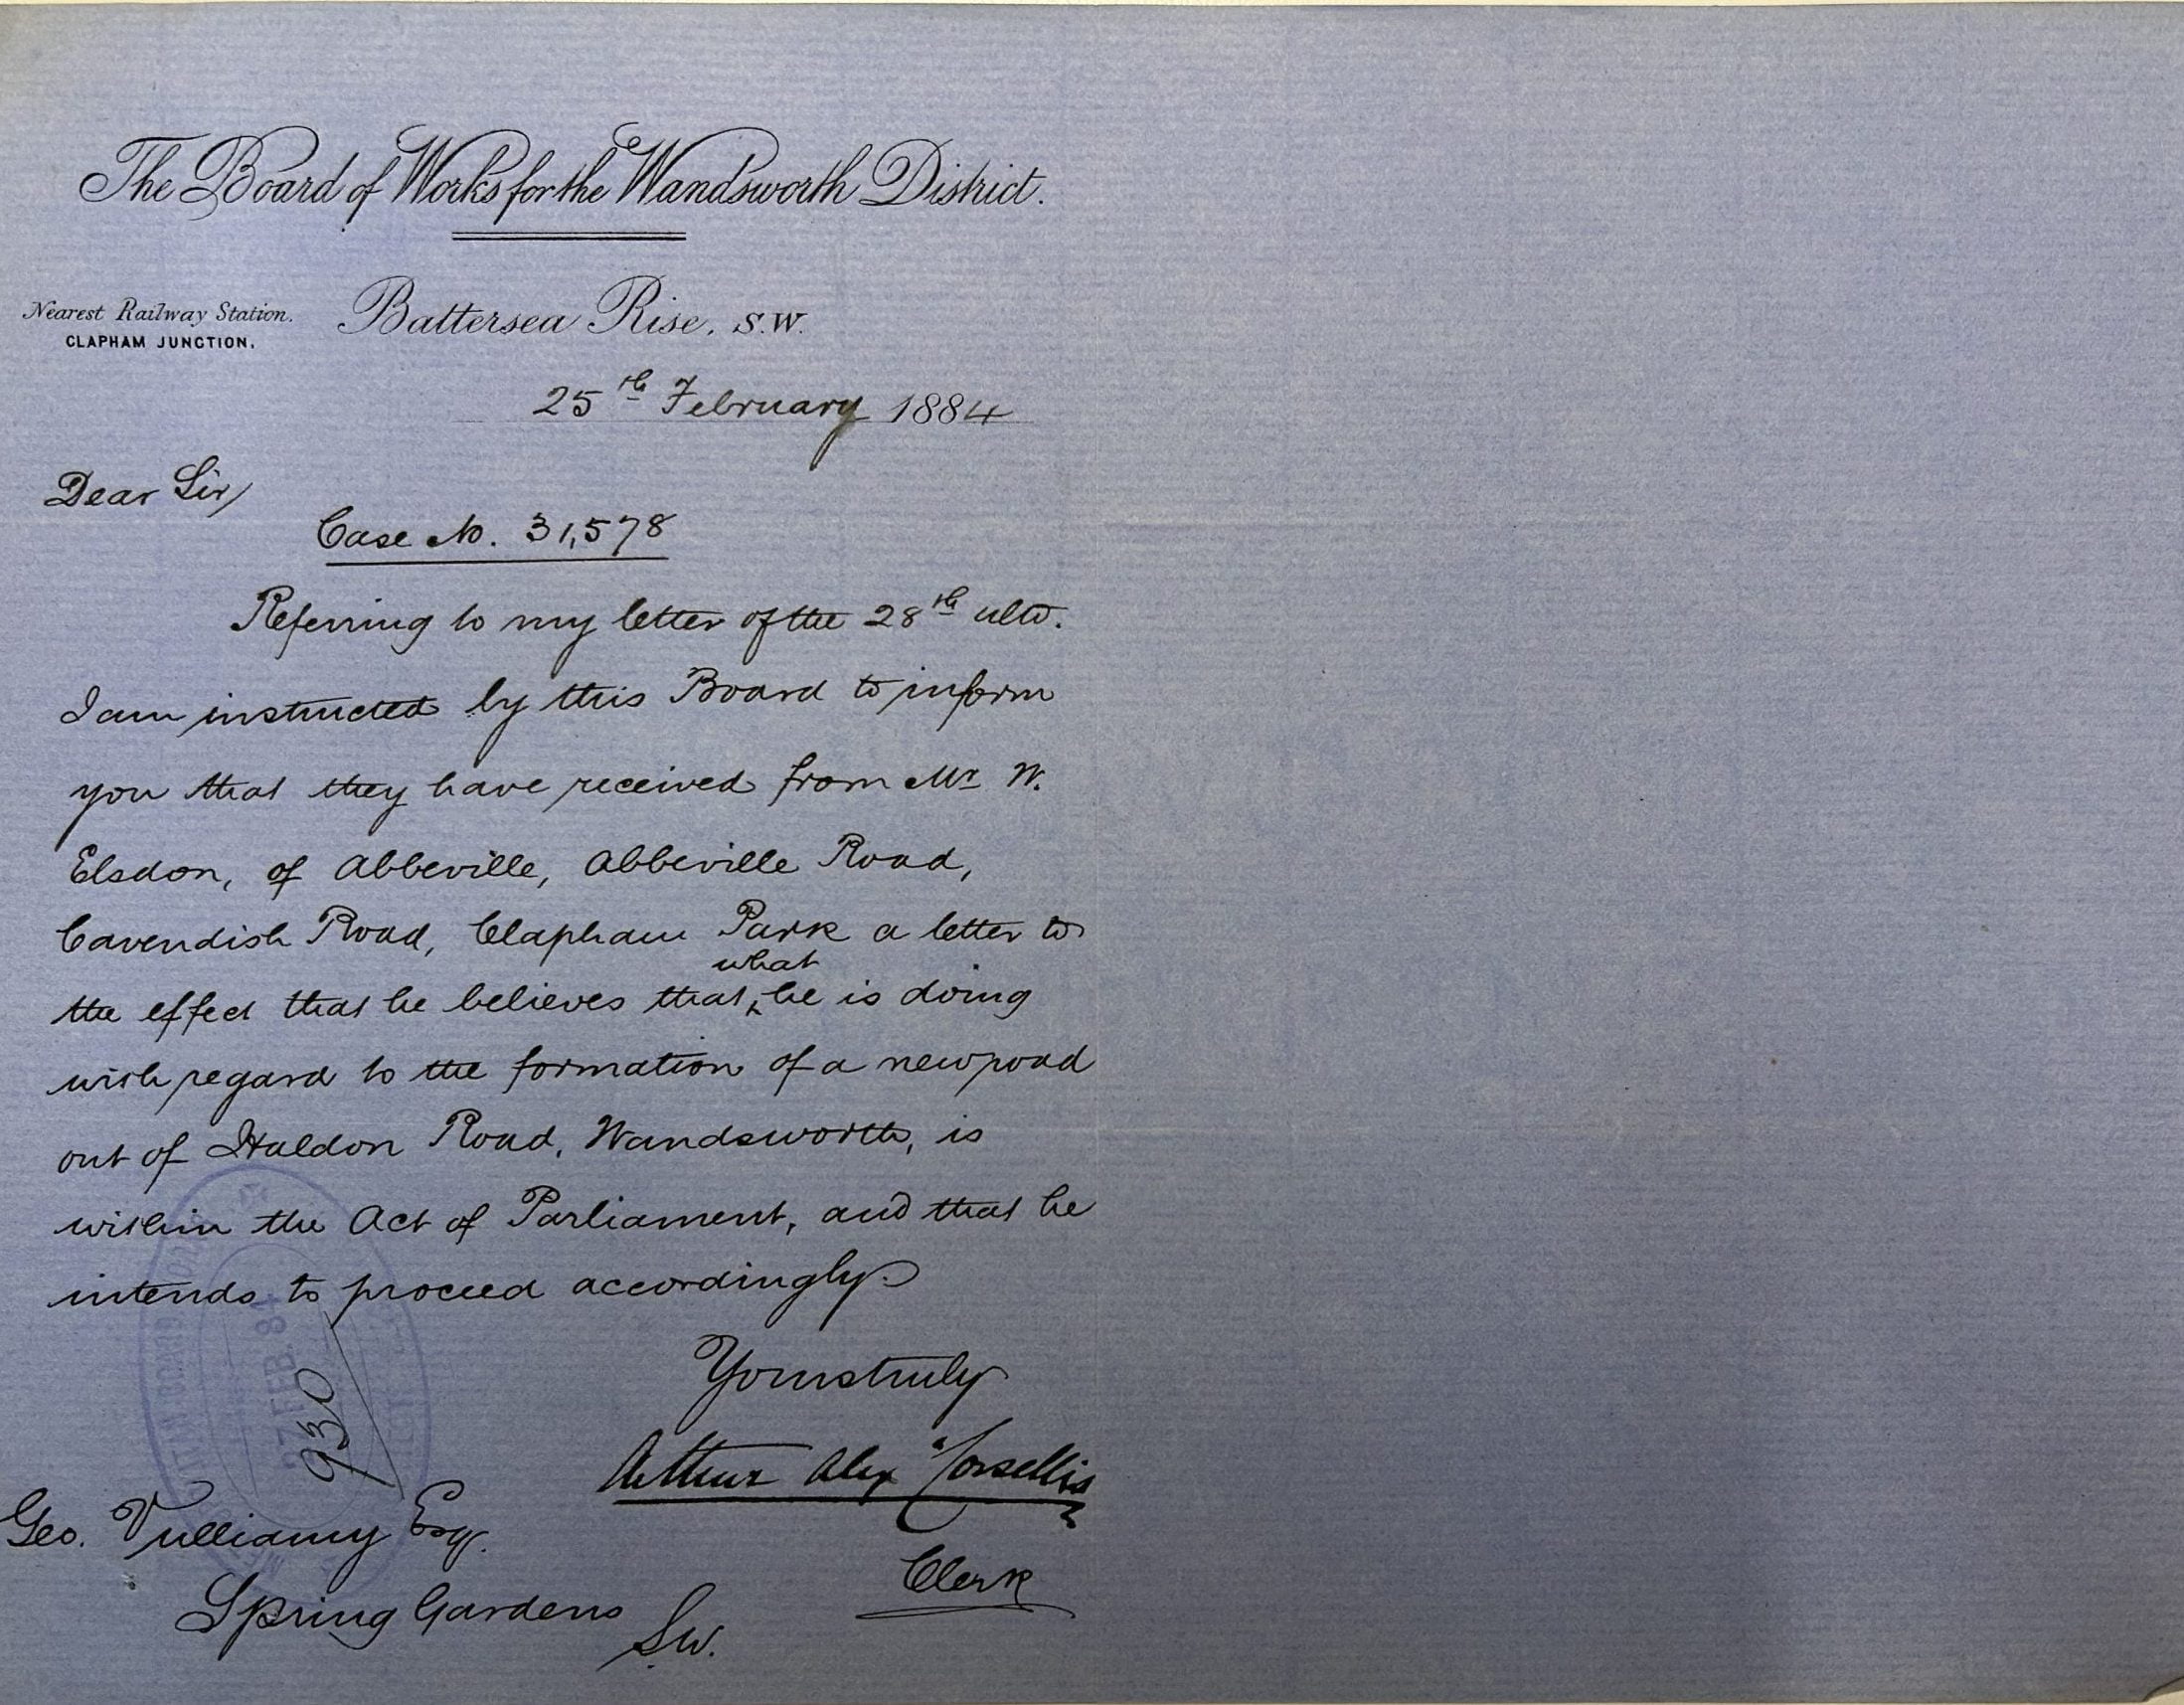 The Board of Works for the Wandsworth District.
Nearest Railway Station.
CLAPHAM JUNCTION.
Battersea Rise, S.W.
25th February 1884
Dear Sir,
Case No. 31,578
Referring to my letter of the 28th ulto.
I am instructed by this Board to inform
you that they have received from Mr W.
Elsdon, of Abbeville, Abbeville Road,
Cavendish Road, Clapham Park a letter to
what
the effect that he believes that he is doing
with regard to the formation of a new road
out of Haldon Road, Wandsworth, is
within the Act of Parliament, and that he
intends to proceed accordingly.
Yours truly
Arthur Alex Corsellis
Clerk
27 FEB. 84
930
Geo. Vulliamy Esq.
Spring Gardens
S.W.